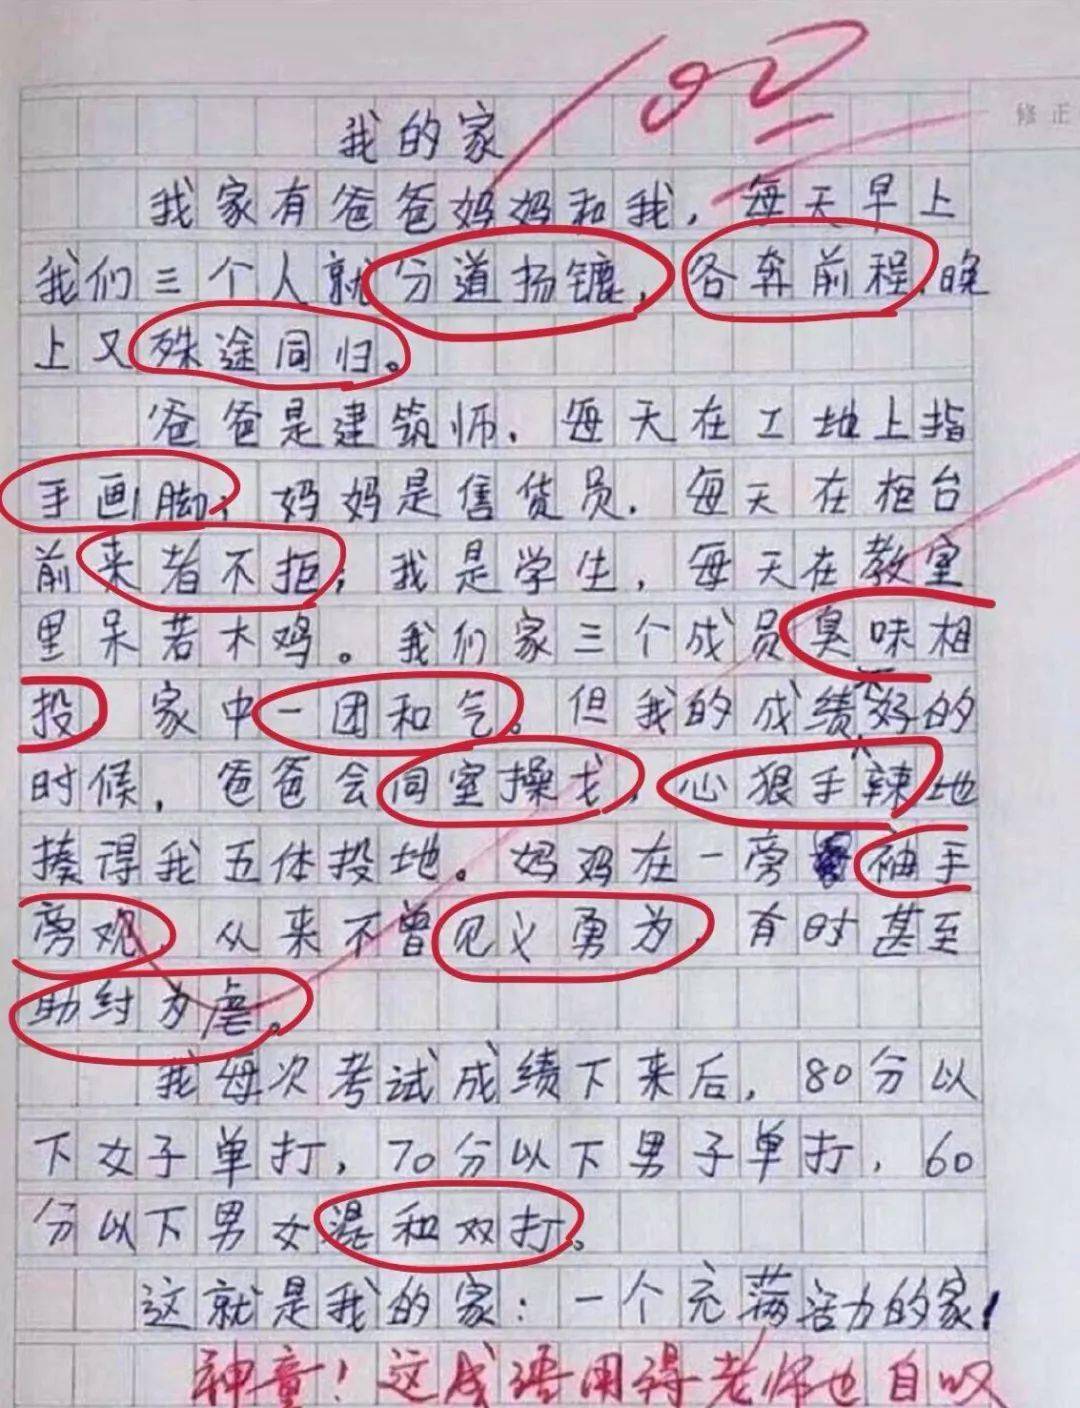 102
修正
我的家
我家有爸爸妈妈和我，每天早上
我们三个人就分道扬镳，各奔前程，晚
上又殊途同归。
爸爸是建筑师，每天在工地上指
手画脚；妈妈是售货员，每天在柜台
前来者不拒；我是学生，每天在教室
里呆若木鸡。我们家三个成员臭味相
投，家中一团和气。但我的成绩不好的
时候，爸爸会同室操戈，心狠手辣地
揍得我五体投地。妈妈在一旁袖手
旁观，从来不曾见义勇为，有时甚至
助纣为虐。
我每次考试成绩下来后，80分以
下女子单打，70分以下男子单打，60
分以下男女混和双打。
这就是我的家：一个充满活力的家！
神童！这成语用得老师也自叹